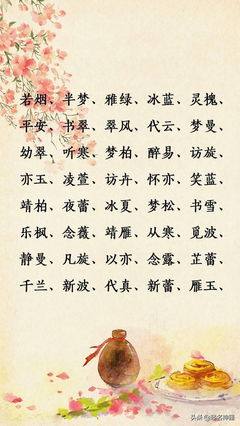 若烟、半梦、雅绿、冰蓝、灵槐、
平安、书翠、翠风、代云、梦曼、
幼翠、听寒、梦柏、醉易、访旋、
亦玉、凌萱、访卉、怀亦、笑蓝、
靖柏、夜蕾、冰夏、梦松、书雪、
乐枫、念薇、靖雁、从寒、觅波、
静曼、凡旋、以亦、念露、芷蕾、
千兰、新波、代真、新蕾、雁玉、